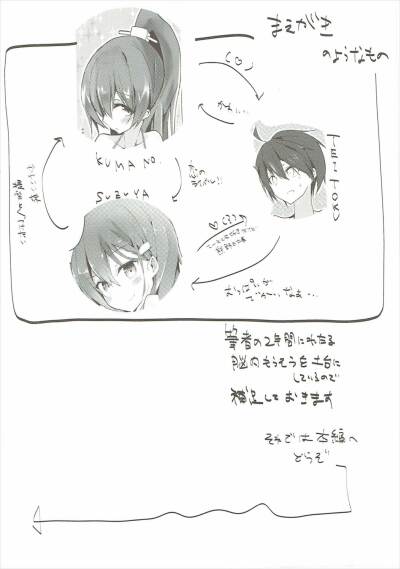 まえがき
のようなもの
かわいい…
TEITOKU
KUMANO
SUZUYA
恋のライバル!!
おっぱいが
でっかいなぁ…
筆者の2年間にわたる
脳内もうそうを土台に
しているので
補足しておきます
それでは本編へ
どうぞ